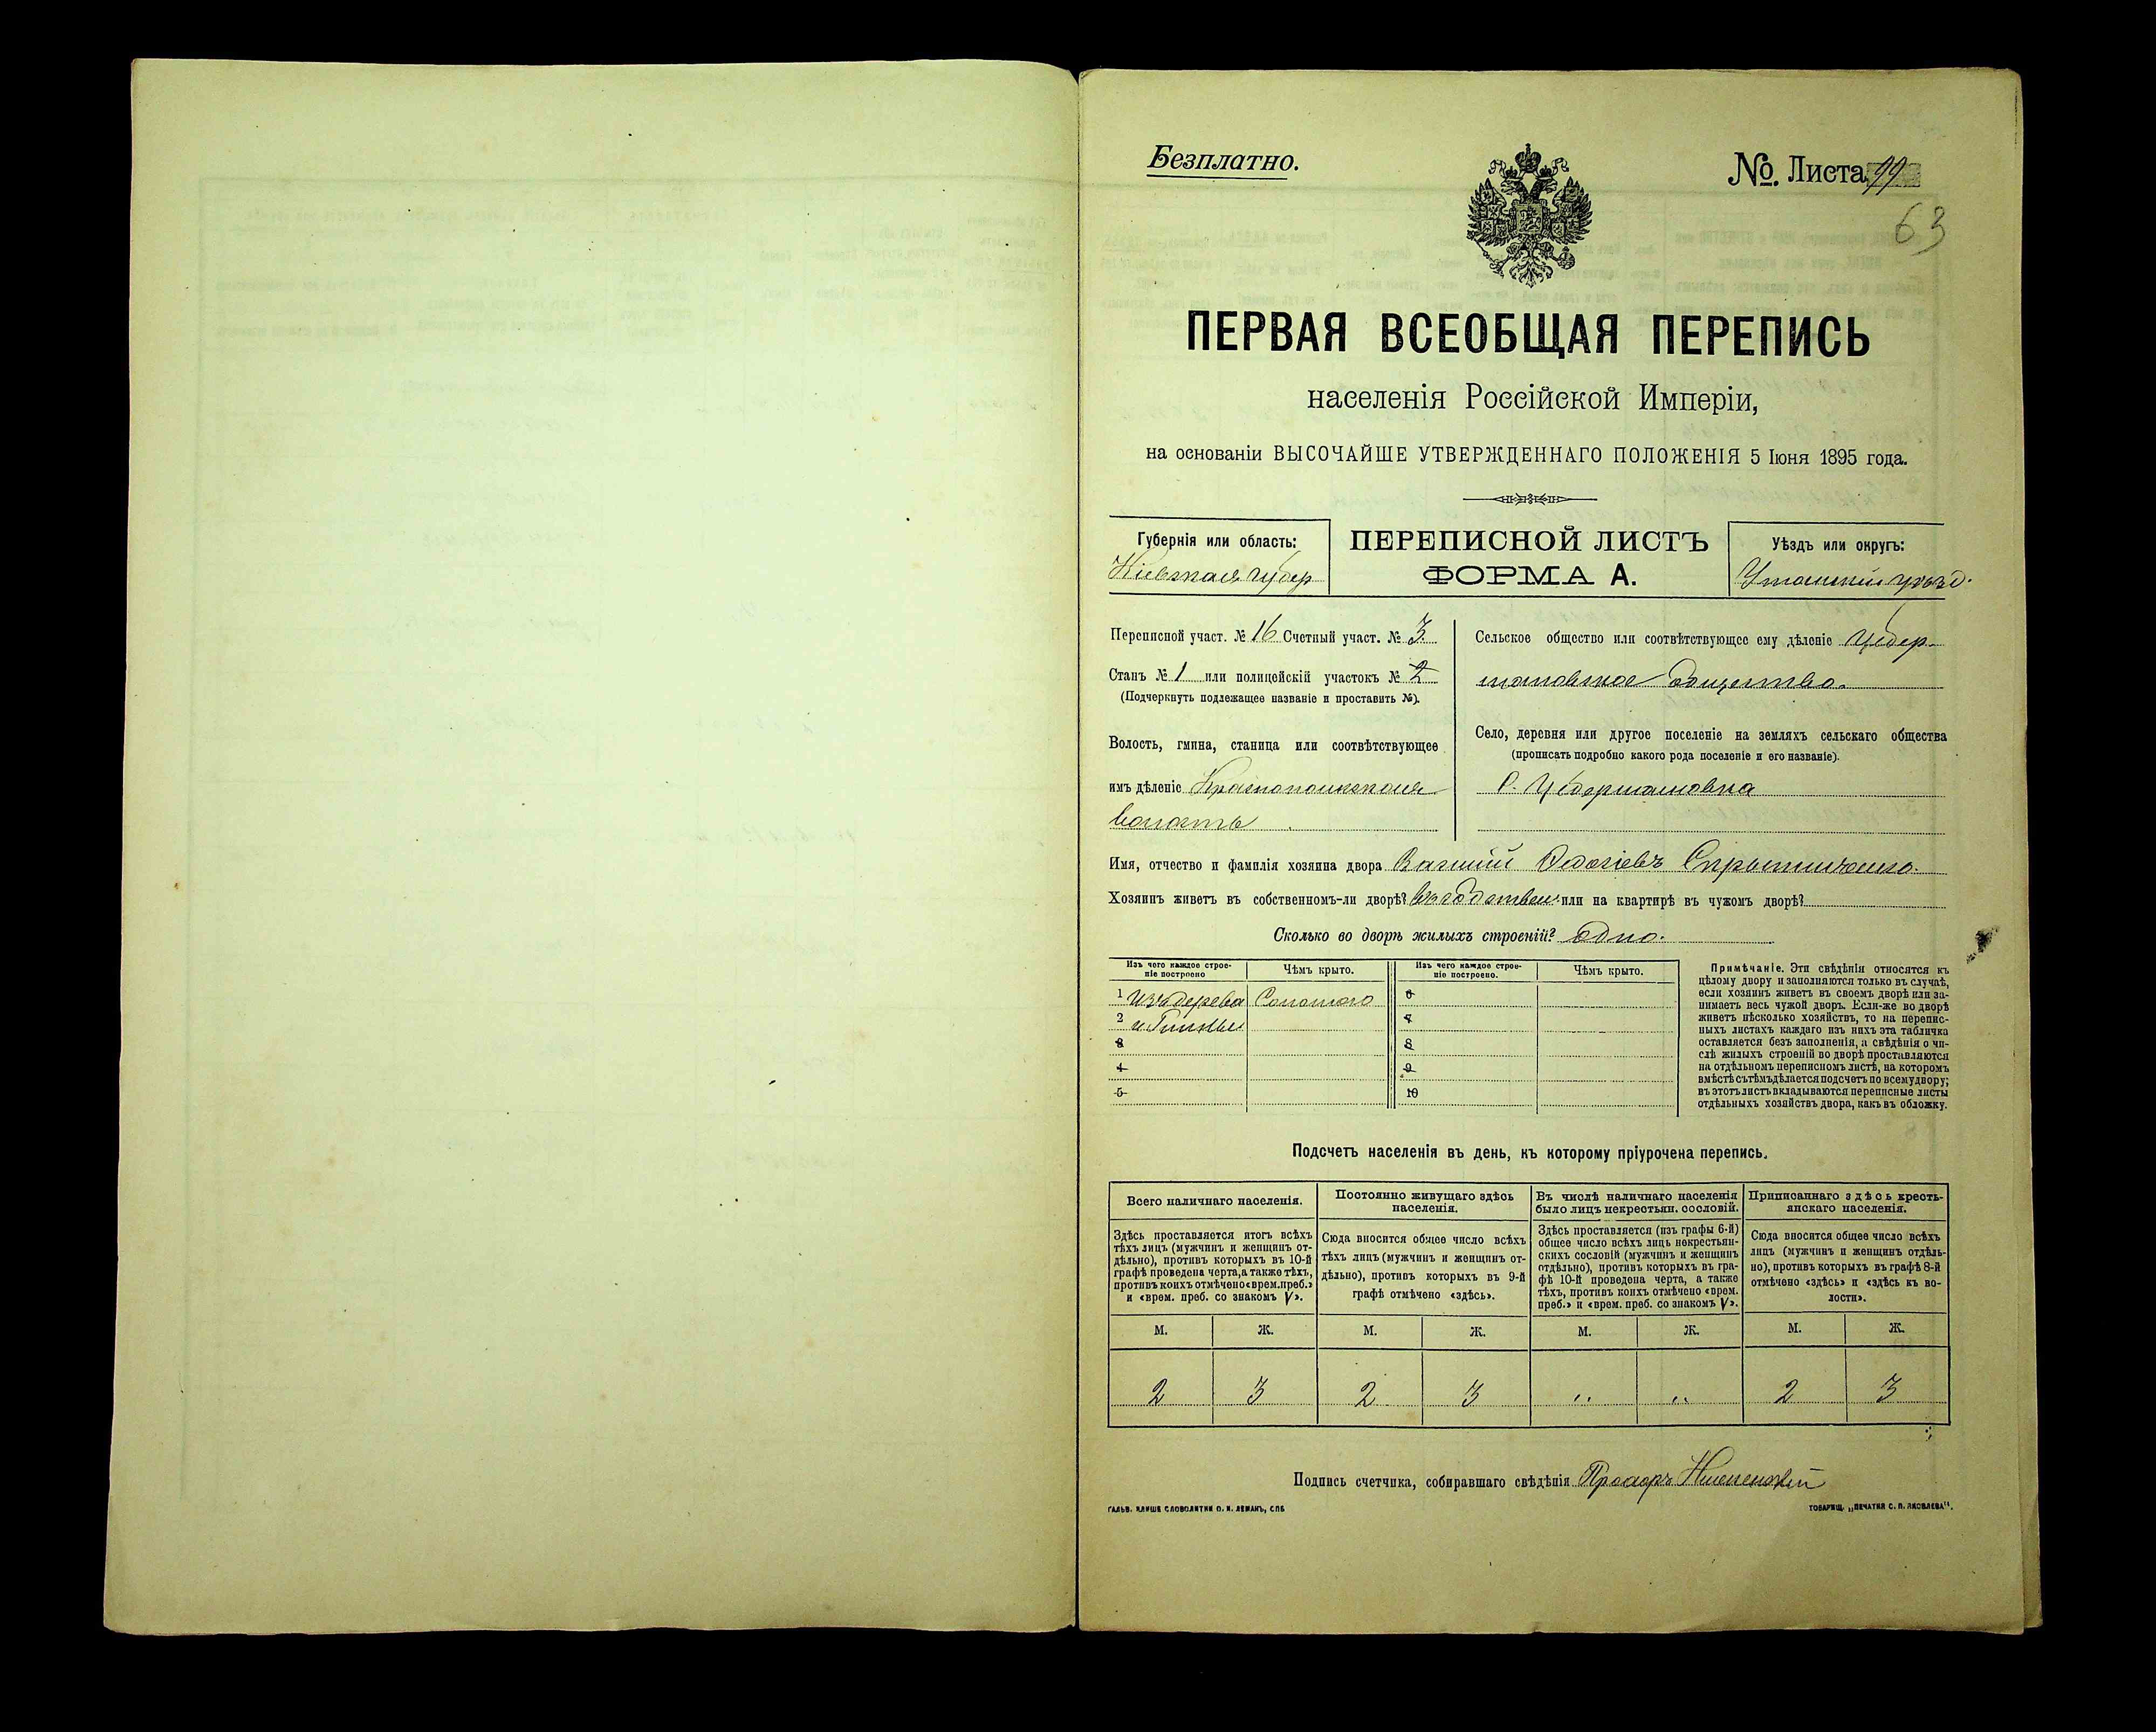 Безплатно.
№. Листа 99
63
ПЕРВАЯ ВСЕОБЩАЯ ПЕРЕПИСЬ
населенія Россійской Имперіи,
на основаніи ВЫСОЧАЙШЕ УТВЕРЖДЕННАГО ПОЛОЖЕНІЯ 5 Іюня 1895 года.
Губернія или область:
Кіевская губер
ПЕРЕПИСНОЙ ЛИСТЪ
ФОРМА А.
Уѣздъ или округъ:
Уманскій уѣзд.
Переписной участ. № 16 Счетный участ. № 3
Станъ № 1 или полицейскій участокъ № 2
(Подчеркнуть подлежащее названіе и проставить №).
Волость, гмина, станица или соотвѣтствующее
имъ дѣленіе Краснопольская
волость
Сельское общество или соотвѣтствующее ему дѣленіе Цебер
мановское общество.
Село, деревня или другое поселеніе на земляхъ сельскаго общества
(прописать подробно какого рода поселеніе и его названіе).
С. Цебермановка
Имя, отчество и фамилія хозяина двора
Хозяинъ живетъ въ собственномъ-ли дворѣ? въ собствен. или на квартирѣ въ чужомъ дворѣ?
Сколько во дворѣ жилыхъ строеній? одно.
Изъ чего каждое строе-
ніе построено
Чѣмъ крыто.
Изъ чего каждое строе-
ніе построено.
Чѣмъ крыто.
1 Изъ дерева Соломою
2 и Глины
3
4
5
6
7
8
9
10
Примѣчаніе. Эти свѣдѣнія относятся къ
цѣлому двору и заполняются только въ случаѣ,
если хозяинъ живетъ въ своемъ дворѣ или за-
нимаетъ весь чужой дворъ. Если-же во дворѣ
живетъ нѣсколько хозяйствъ, то на перепис-
ныхъ листахъ каждаго изъ нихъ эта табличка
оставляется безъ заполненія, а свѣдѣнія о чи-
слѣ жилыхъ строеній во дворѣ проставляются
на отдѣльномъ переписномъ листѣ, на которомъ
вмѣстѣ съ тѣмъ дѣлается подсчетъ по всему двору;
въ этотъ листъ вкладываются переписные листы
отдѣльныхъ хозяйствъ двора, какъ въ обложку.
Подсчетъ населенія въ день, къ которому пріурочена перепись.
Всего наличнаго населенія.
Здѣсь проставляется итогъ всѣхъ
тѣхъ лицъ (мужчинъ и женщинъ от-
дѣльно), противъ которыхъ въ 10-й
графѣ проведена черта, а также тѣхъ,
противъ коихъ отмѣчено «врем. преб.»
и «врем. преб. со знакомъ V».
Постоянно живущаго здѣсь
населенія.
Сюда вносится общее число всѣхъ
тѣхъ лицъ (мужчинъ и женщинъ от-
дѣльно), противъ которыхъ въ 9-й
графѣ отмѣчено «здѣсь».
Въ числѣ наличнаго населенія
было лицъ некрестьян. сословій.
Здѣсь проставляется (изъ графы 6-й)
общее число всѣхъ лицъ некрестьян-
скихъ сословій (мужчинъ и женщинъ
отдѣльно), противъ которыхъ въ гра-
фѣ 10-й проведена черта, а также
тѣхъ, противъ коихъ отмѣчено «врем.
преб.» и «врем. преб. со знакомъ V».
Приписаннаго здѣсь кресть-
янскаго населенія.
Сюда вносится общее число всѣхъ
лицъ (мужчинъ и женщинъ отдѣль-
но), противъ которыхъ въ графѣ 8-й
отмѣчено «здѣсь» и «здѣсь къ во-
лости».
М. Ж. М. Ж. М. Ж. М. Ж.
2 3 2 3 „ „ 2 3
Подпись счетчика, собиравшаго свѣдѣнія
ГАЛЬВ. КЛИШЕ СЛОВОЛИТНИ О. И. ЛЕМАНЪ, СПБ
ТОВАРИЩ. „ПЕЧАТНЯ С. П. ЯКОВЛЕВА".